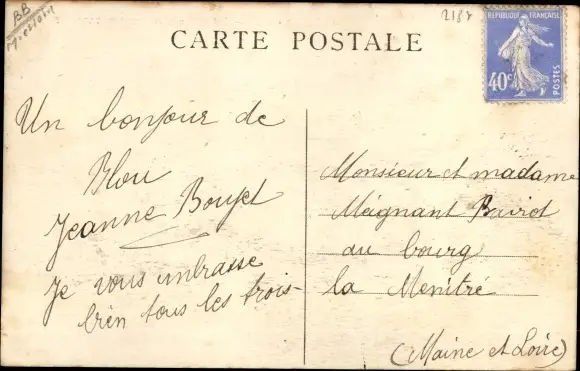 BB
2187
REPUBLIQUE FRANÇAISE
40c
POSTES
CARTE POSTALE
Un bonjour de
Blou
Jeanne
Je vous embrasse
bien tous les trois
Monsieur et madame
Meignant
au bourg
la Menitré
(Maine et Loire)